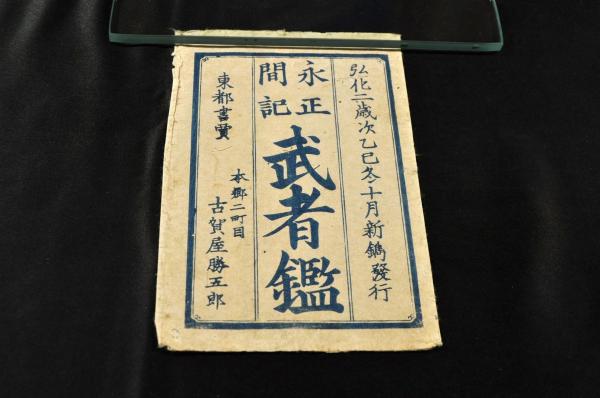 弘化二歳次乙巳冬十月新鐫發行
永正
間記
武者鑑
東都書賈
本郷二町目
古賀屋勝五郎